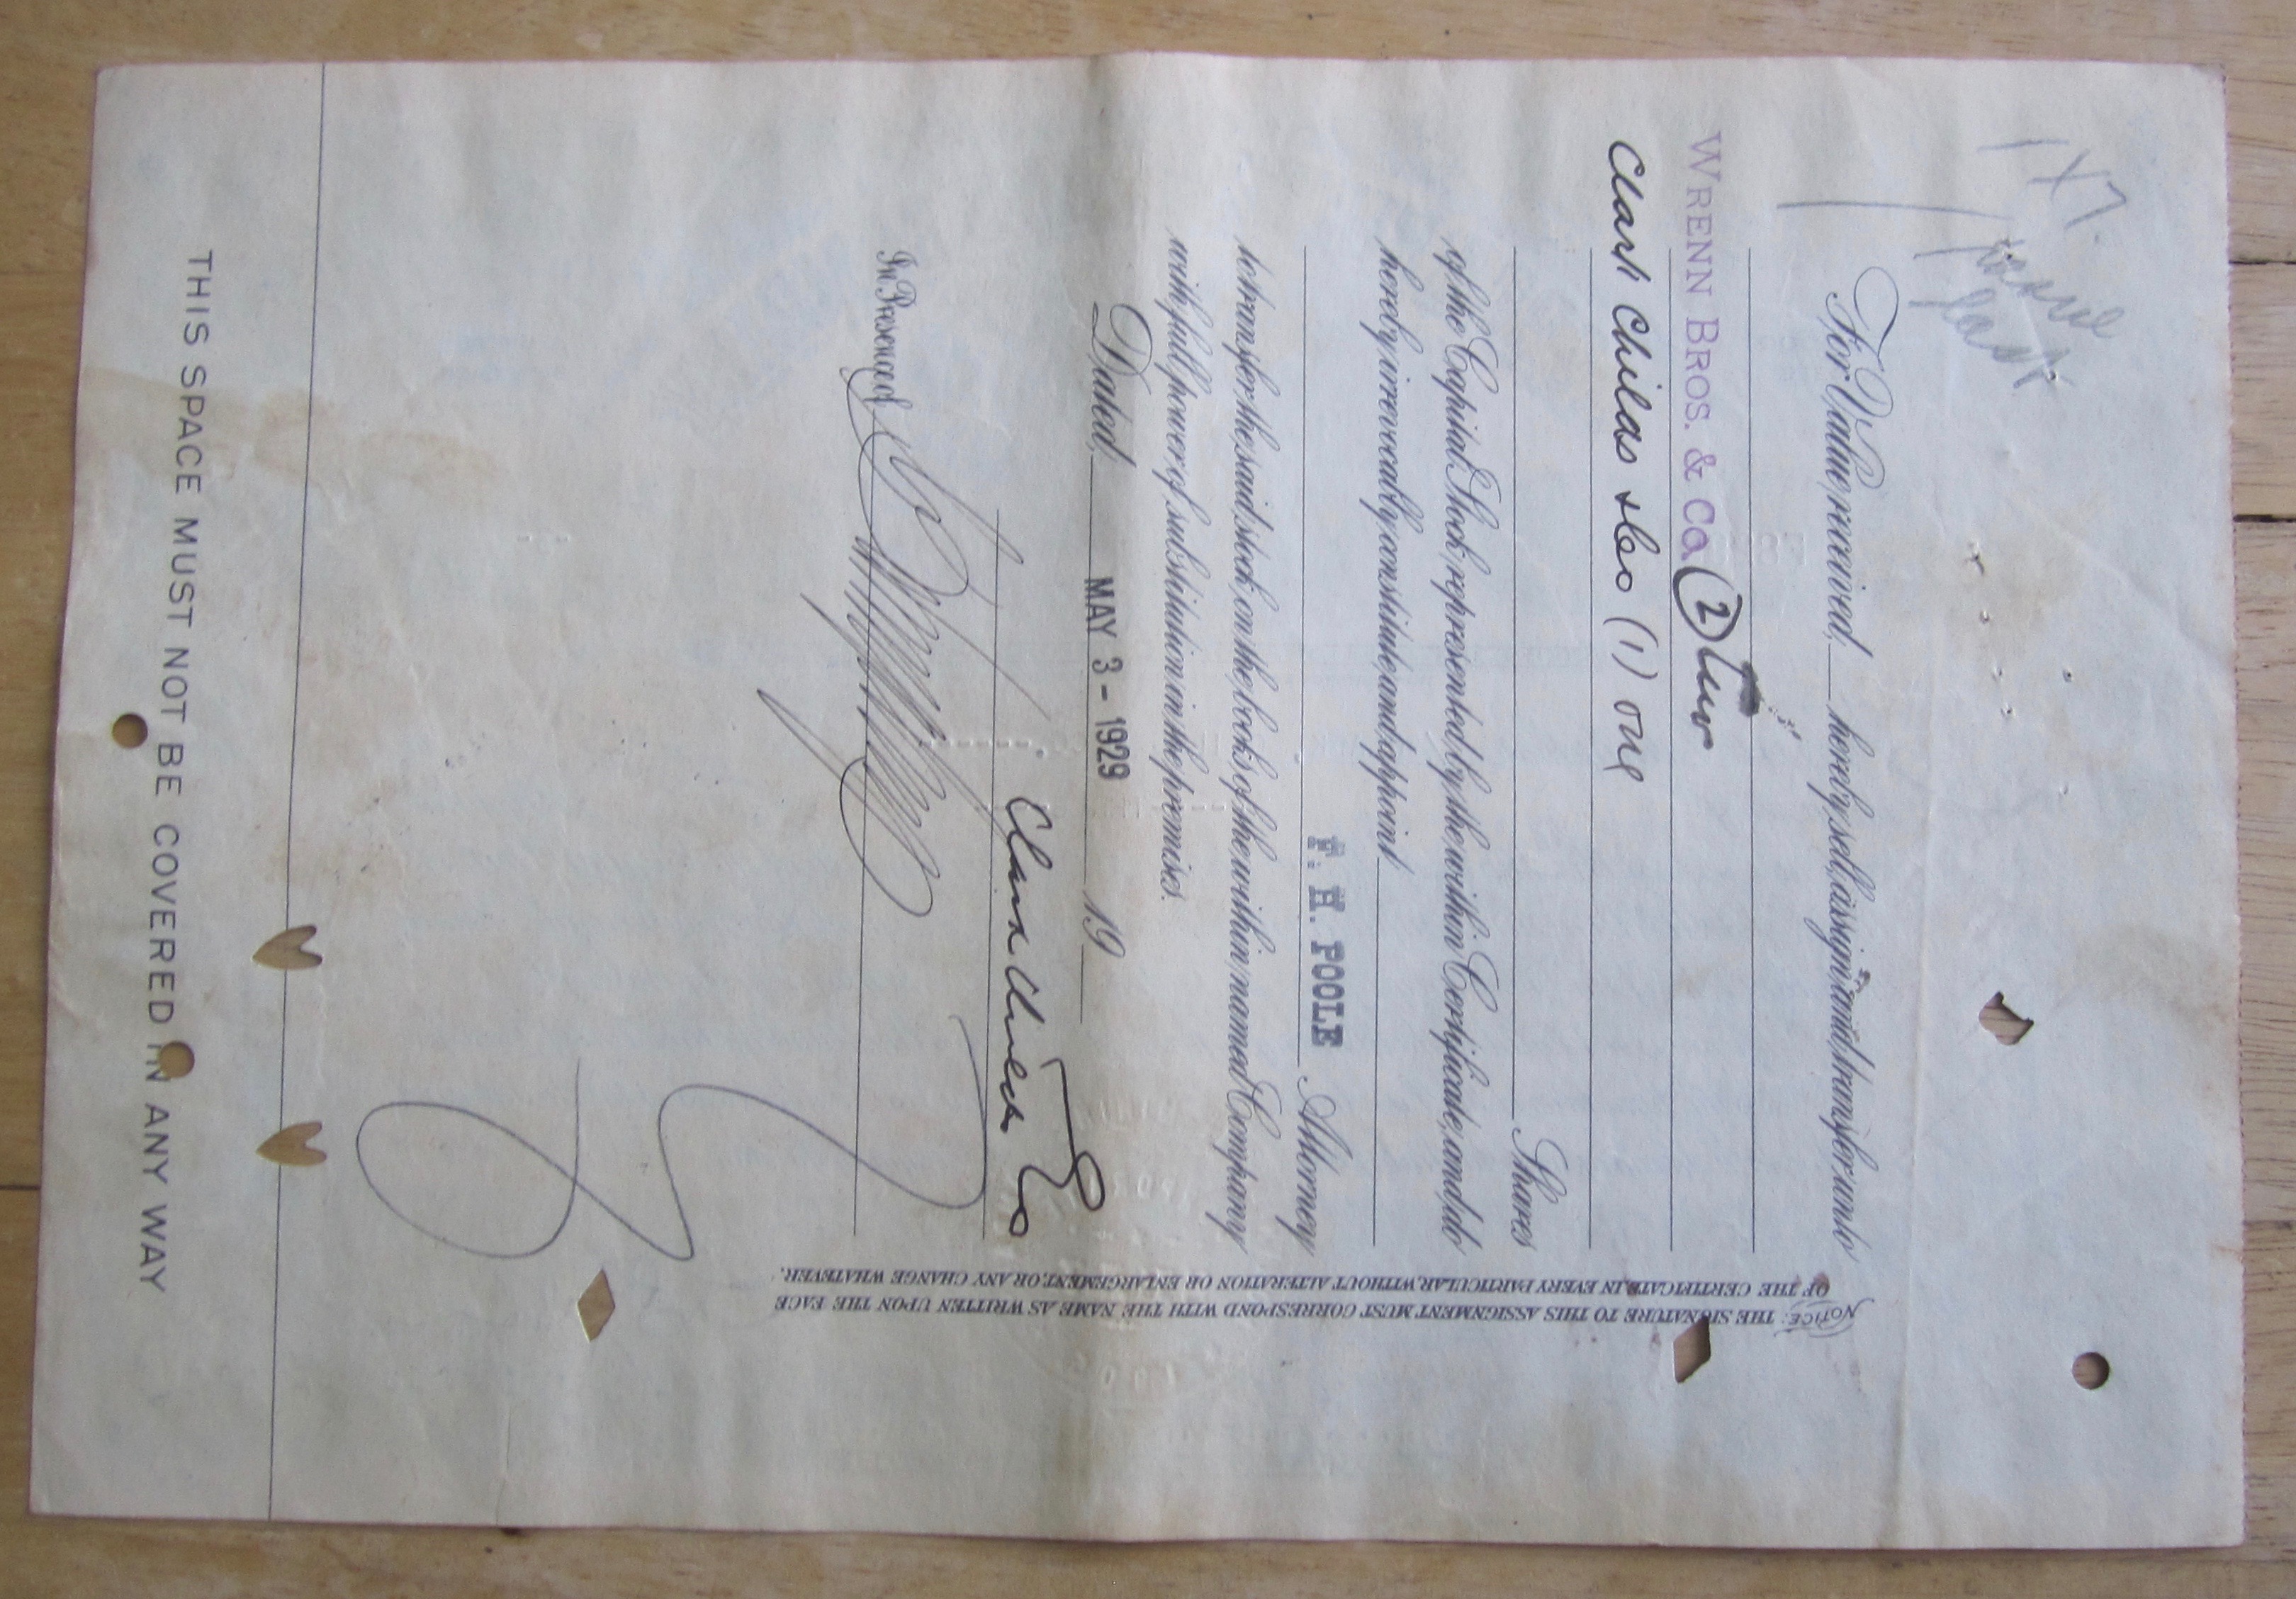 1 X 7.
For Value received, ___ hereby sell, assign and transfer unto
WRENN BROS. & CO (2) Two
Clark Childs & Co (1) one
Shares
of the Capital Stock represented by the within Certificate, and do
hereby irrevocably constitute and appoint
F. H. POOLE Attorney
to transfer the said stock on the books of the within named Company
with full power of substitution in the premises.
Dated, MAY 3 - 1929 19
Clark Childs & Co
In Presence of
NOTICE: THE SIGNATURE TO THIS ASSIGNMENT MUST CORRESPOND WITH THE NAME AS WRITTEN UPON THE FACE
OF THE CERTIFICATE, IN EVERY PARTICULAR, WITHOUT ALTERATION OR ENLARGEMENT, OR ANY CHANGE WHATEVER.
THIS SPACE MUST NOT BE COVERED IN ANY WAY